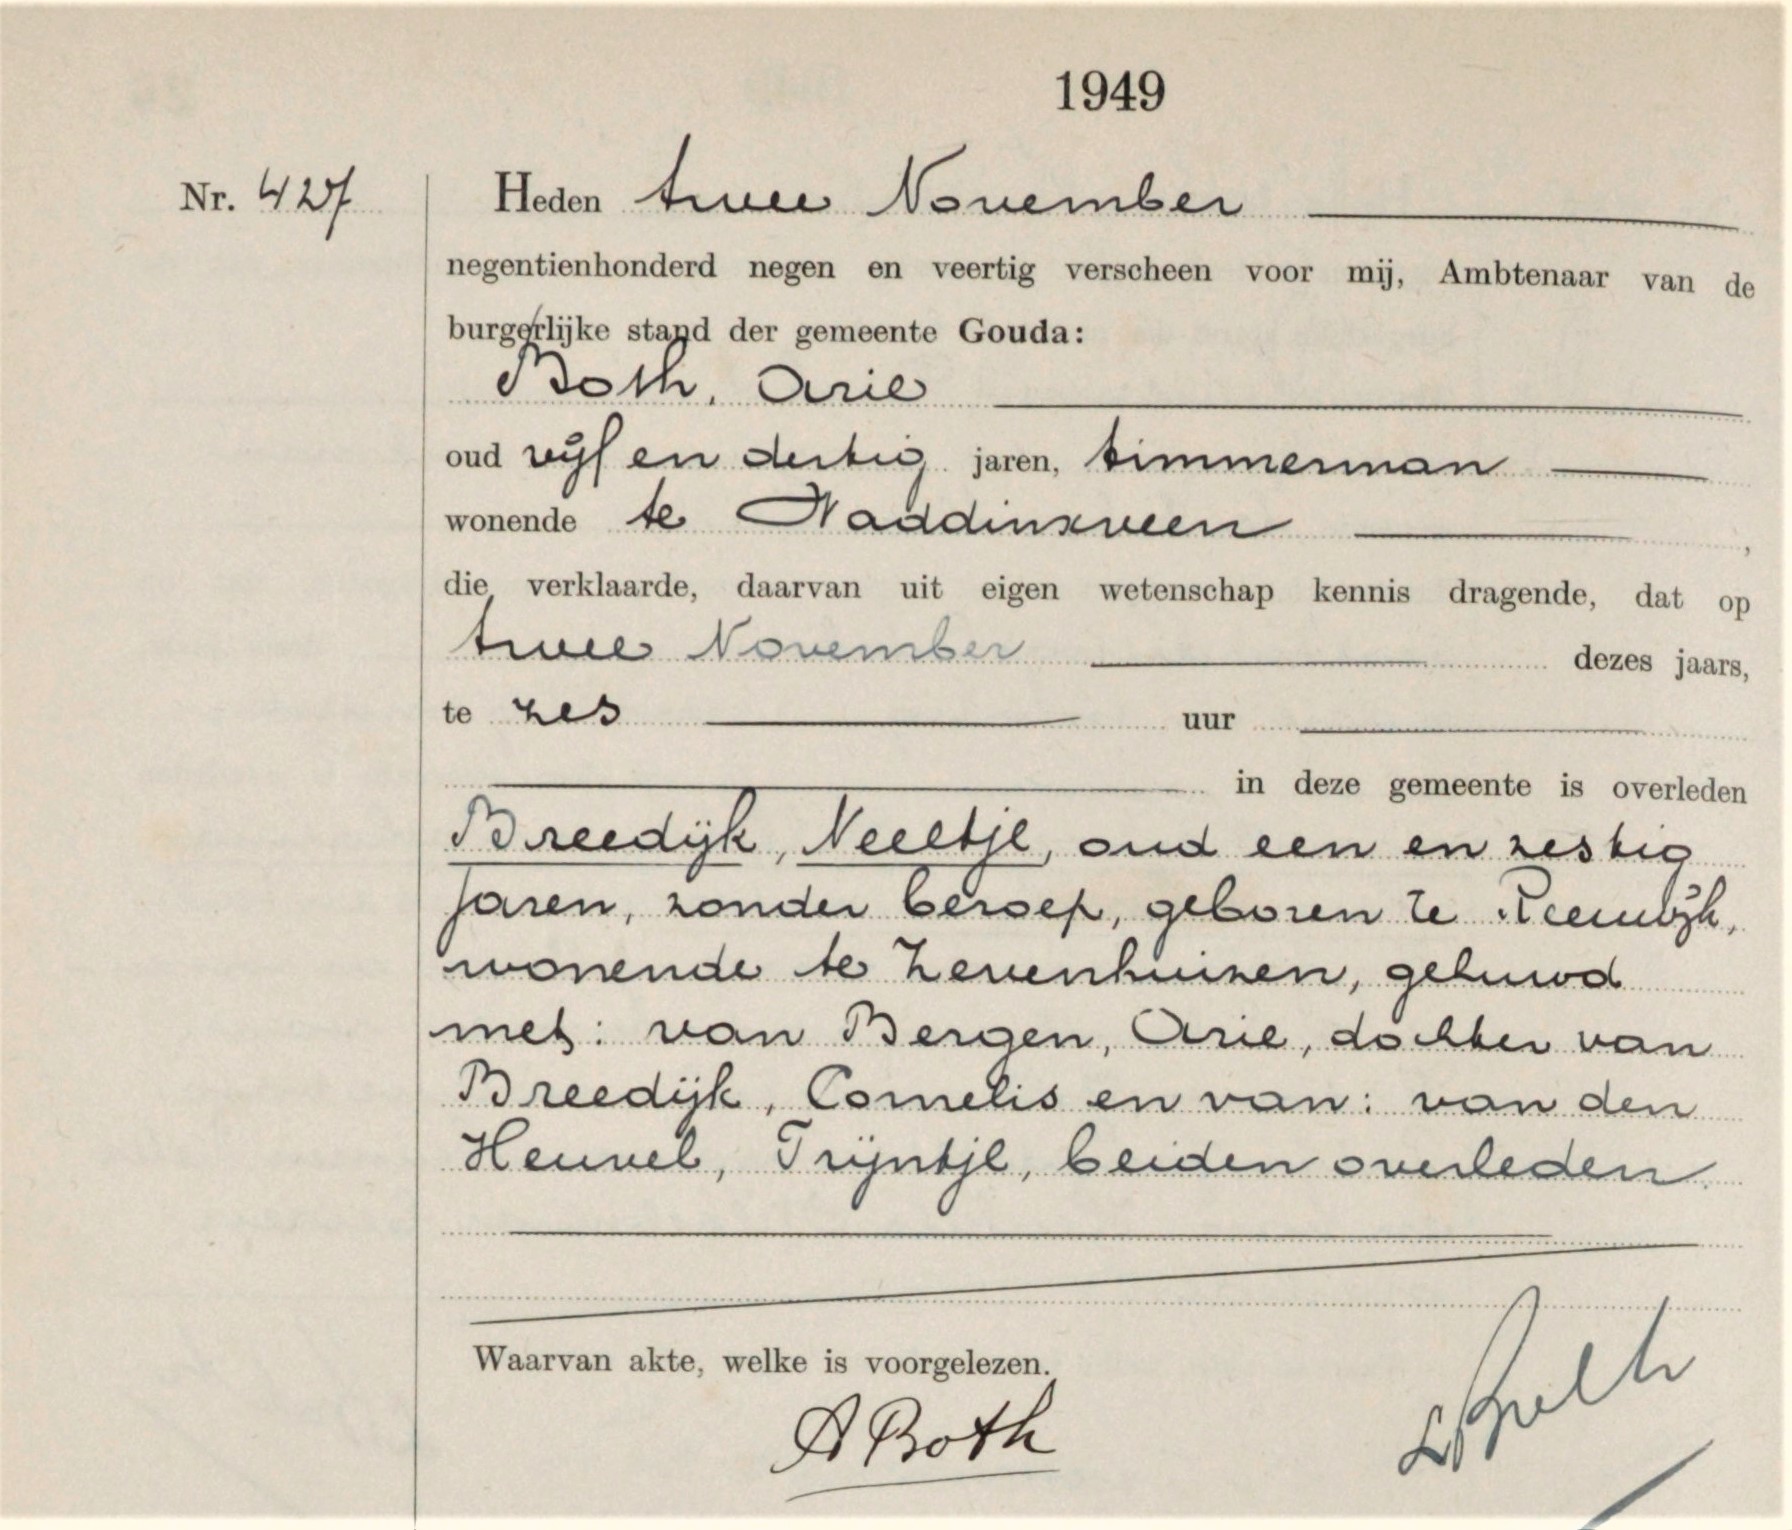 1949
Nr. 427
Heden twee November
negentienhonderd negen en veertig verscheen voor mij, Ambtenaar van de
burgerlijke stand der gemeente Gouda:
Both, Arie
oud vijf en dertig jaren, timmerman
wonende te Waddinxveen ,
die verklaarde, daarvan uit eigen wetenschap kennis dragende, dat op
twee November dezes jaars,
te zes uur
in deze gemeente is overleden
Breedijk, Neeltje, oud een en zestig
jaren, zonder beroep, geboren te Reeuwijk,
wonende te Zevenhuizen, gehuwd
met: van Bergen, Arie, dochter van
Breedijk, Cornelis en van: van den
Heuvel, Trijntje, beiden overleden.
Waarvan akte, welke is voorgelezen.
A Both